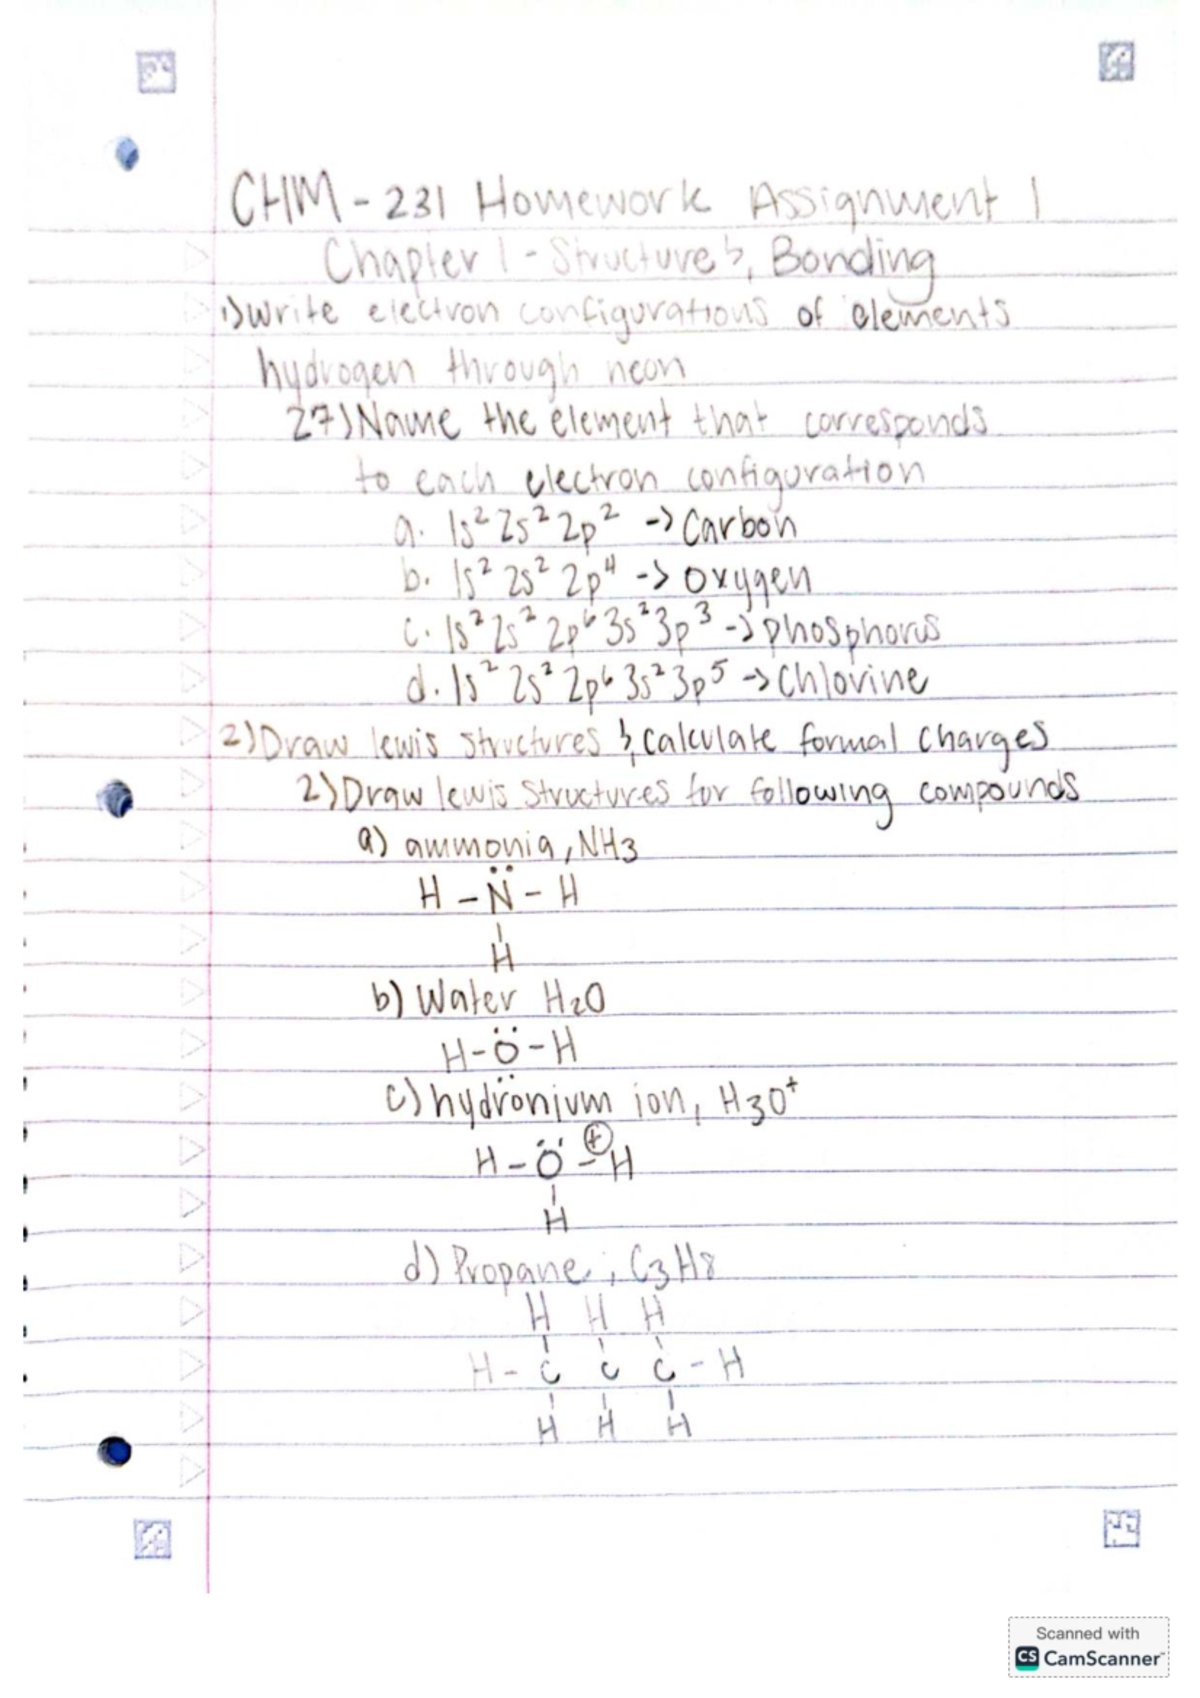 CHM-231 Homework Assignment 1
Chapter 1 - Structure & Bonding
1) Write electron configurations of elements
hydrogen through neon
27) Name the element that corresponds
to each electron configuration
a. 1s² 2s² 2p² -> Carbon
b. 1s² 2s² 2p⁴ -> oxygen
c. 1s² 2s² 2p⁶ 3s² 3p³ -> phosphorus
d. 1s² 2s² 2p⁶ 3s² 3p⁵ -> Chlorine
2) Draw lewis structures & calculate formal charges
2) Draw lewis structures for following compounds
a) ammonia, NH3
H - N̈ - H
H
b) Water H2O
H - Ö - H
c) hydronium ion, H3O⁺
H - Ö - H ⊕
H
d) Propane, C3H8
H H H
H - C C C - H
H H H
Scanned with
CS CamScanner